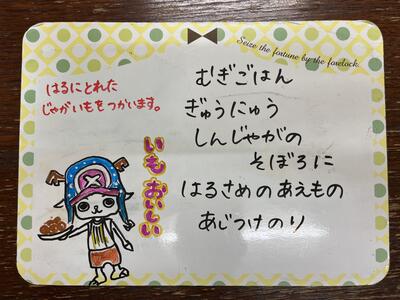 Seize the fortune by the forelock.
はるにとれた
じゃがいもをつかいます。
いもおいしい
むぎごはん
ぎゅうにゅう
しんじゃがの
そぼろに
はるさめのあえもの
あじつけのり